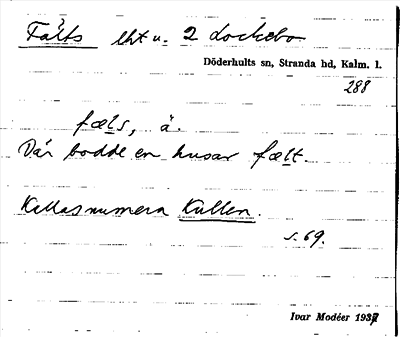 Fälts lht u. 2 Lockebo
Döderhults sn, Stranda hd, Kalm. l.
288
fæls, ä.
Där bodde en husar fælt
Kallas numera Kullen.
s. 69.
Ivar Modéer 1937